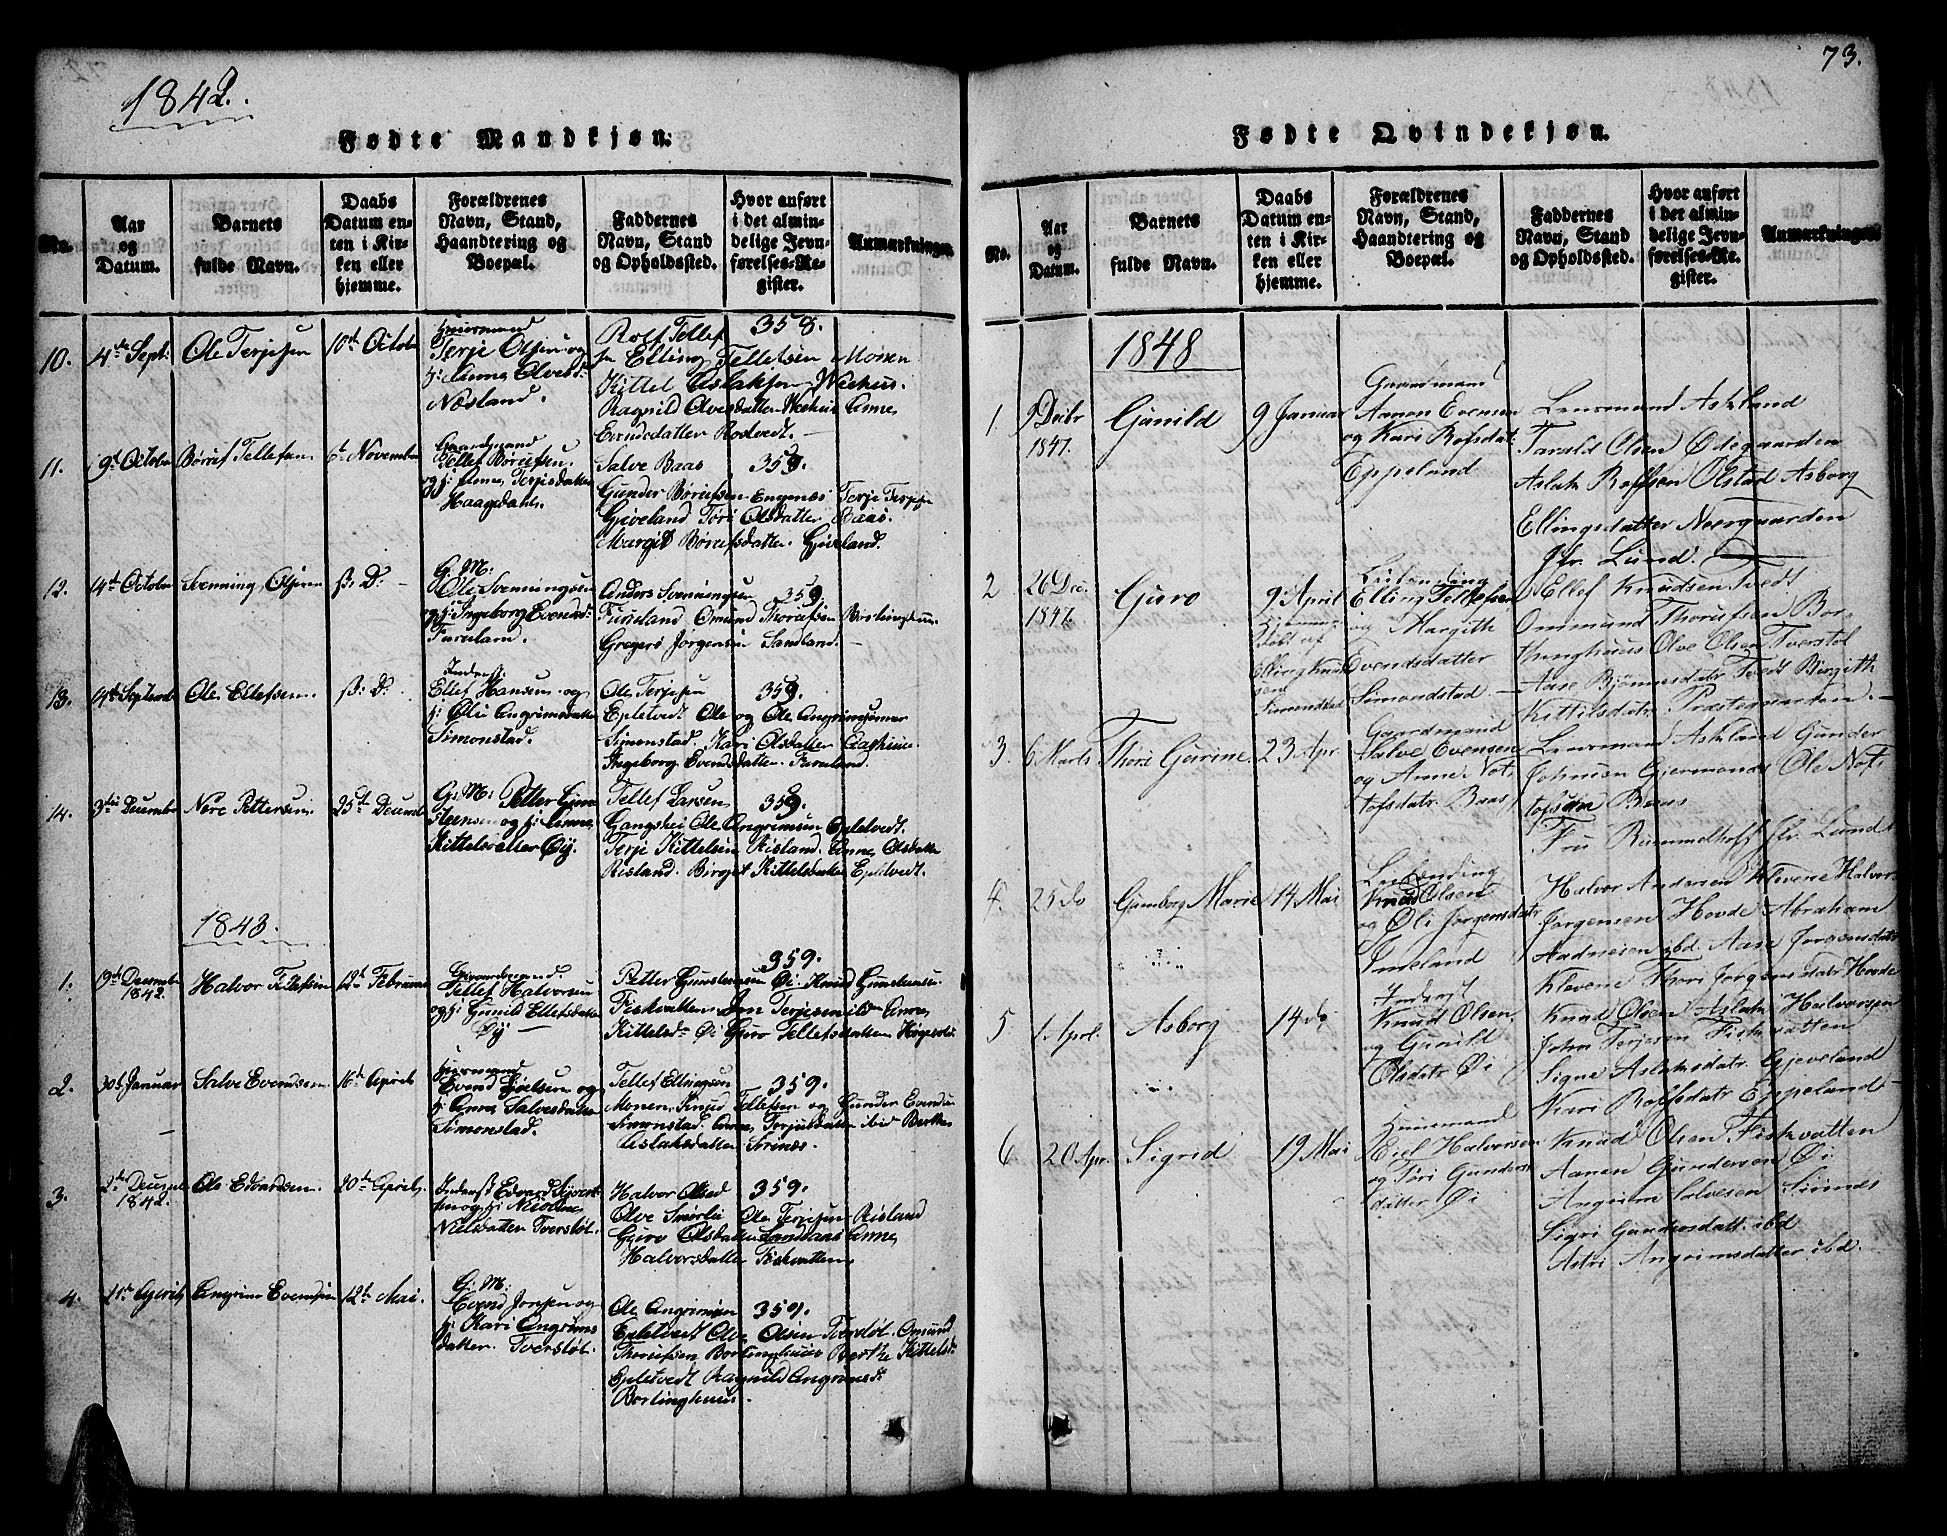 1842.
Fødte Mandkjøn.
No.
Aar og Datum.
Barnets fulde Navn.
Daabs Datum enten i Kirken eller hjemme.
Forældrenes Navn, Stand, Haandtering og Boepæl.
Faddernes Navn, Stand og Opholdssted.
Hvor anført i det almindelige Jevnførelses-Register.
Anmærkninger.
10. 4de Sept: Ole Terjesen 10de October
Huusmand
Terje Olsen og
h: Anne Olvesd:
Næsland.
Rolf Tellef 358.
sn Elling Tellefsen Moinen
Kittel Aslaksen Weehus.
Ragnild Olvesdatter Weehus Anne
Evendsdatter Rostvedt.
11. 9de October Børuf Tellefsen 6te November
Gaardmand
Tellef Børufsen
og h: Anne Terjesdatter
Haagedahl.
Salve Baas 359.
Gunder Børufsen Engenes Terje Terjesen
Gjeveland Tøri Olsdatter Baas.
Margit Børufsdatter Gjeveland.
12. 14de October Svenning Olsen s: D:
G: M:
Ole Svenningsen
og h: Ingeborg Evensd:
Anders Svenningsen 359.
Furuland Omund Thorufsen
Gregers Jørgensen Sandland.
13. 14de September Ole Ellefsen s: D:
Inderst:
Ellef Hansen og
h: Øli Angrimsdatter
Simonstad.
Ole Terjesen 359.
Epletvedt Ole og Ole Angrimsønner
Simonstad. Kari Olsdatter
Ingeborg Evensdatter Furuland.
14. 3die December Nere Pettersen 25de December
G: M: Petter Gun
stensen og h: Anne
Kittelsdatter Øy.
Tellef Larsen 359.
Gangshei Ole Angrimsen Epletvedt.
Terje Kittelsen Risland. Anne Olsdatter
Risland. Birgit Kittelsdatter Epletvedt.
1843.
1. 19de December 1842. Halvor Tellefsen 12te Februar
Gaardmand
Tellef Halvorsen
og h: Gunild Ellefsdatter
Øy
359.
Petter Gunstensen Øi. Knud Gunstensen
Fiskvatten Jon Terjesen ibd Anne
Kittelsd: Øi Guro Tellefsdatter
2. 30te Januar Salve Evendsen 16de April
Huusmand
Evend Ejelsen og
h: Anne Salvesdatter
Simonstad.
Tellef Ellingsen 359.
Monen, Knud Tellefsen og Gunder Evendsen
Simonstad. Anne Terjesdatter ibid Berthe
Aslaksdatter Sirenæs.
3. 2de December 1842. Ole Edvardsen 20de April
Inderst Edvard Syvert
sen og h:
Nielsdatter Tverstøl.
Halvor Olsed 359.
Olve Smørlie Ole Terjesen Risland
Guro Olsdatter Sandaas Anne
Halvorsdatter Fiskvatten
4. 11te April Angrim Evensen 12te Mai.
G: M:
Evend Jensen og
h: Kari Angrims
datter. Tverstøl.
Ole Angrimsen 359.
Epletvedt Ole Olsen Tverstøl. Omund
Thorufsen Borlinghuus Berthe Kittelsd:
Epletvedt Ragnild Angrimsd:
Borlinghuus.
73.
Fødte Qvindekjøn.
No.
Aar og Datum.
Barnets fulde Navn.
Daabs Datum enten i Kirken eller hjemme.
Forældrenes Navn, Stand, Haandtering og Boepæl.
Faddernes Navn, Stand og Opholdssted.
Hvor anført i det almindelige Jevnførelses-Register.
Anmærkninger.
1848
1. 9 Decbr 1847. Gunild 9 Januar
Gaardmand
Aanon Evensen
og Kari Rofsdat:
Eppeland
Lensmand Askland
Tarald Olsen Ødegaarden
Aslak Roffsen Ølstad Asborg
Ellingsdatter Noergaarden
Jfr. Lund.
2 26 Dec. 1847. Guro 9 April
Elling Tellefsen
og Margith
Evendsdatter
Simondstad.
Ellef Knudsen Tvedt
Ommund Thorufsen Bor-
linghuus Olve Olsen Tverstøl
Aase Bjønnesdatr Tvedt Birgith
Kittilsdatr Præstegaarden.
3. 6 Marts Thore Gurine 23 Apr
Gaardmand
Salve Evensen
og Anne Not
tofsdatr Baas
Lensmand Askland Gunder
Johnsen Gjermonds Ole Not
tofsen Baas
Fru Rummelhoff Jfr. Lund
4. 25 do Gunborg Marie 14 Mai
Knud Olsen
og Øli Jørgensdatr
Imeland
Halvor Andersen Klevene Halvor
Jørgensen Hovde Abraham
Aadnesen ibd. Aase Jørgensdatr
Klevene Thori Jørgensdatr Hovde
5. 1. Aprl. Asborg 14 do
Inderst
Knud Olsen
og Gunild
Olsdatr Øi
Knud Olsen Aslak Halvorsen
John Terjesen Fiskvatten
Signe Aslaksdatr Gjeveland
Kari Roffsdatr Eppeland
6 20 Apr. Sigrid 19 Mai
Huusmand
Eiel Halvorsen
og Tøri Gunders
datter Øi
Knud Olsen Fiskvatten
Aanen Gundersen Øi
Angrim Salvesen Sirines
Sigri Gundersdatt. ibd
Astri Angrimsdatter ibd.